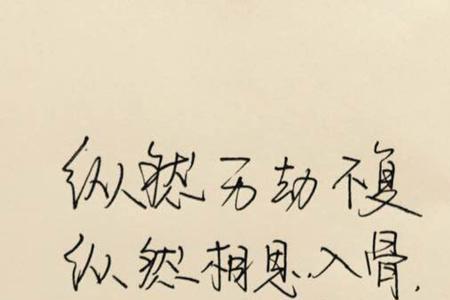 纵然万劫不复
纵然相思入骨.